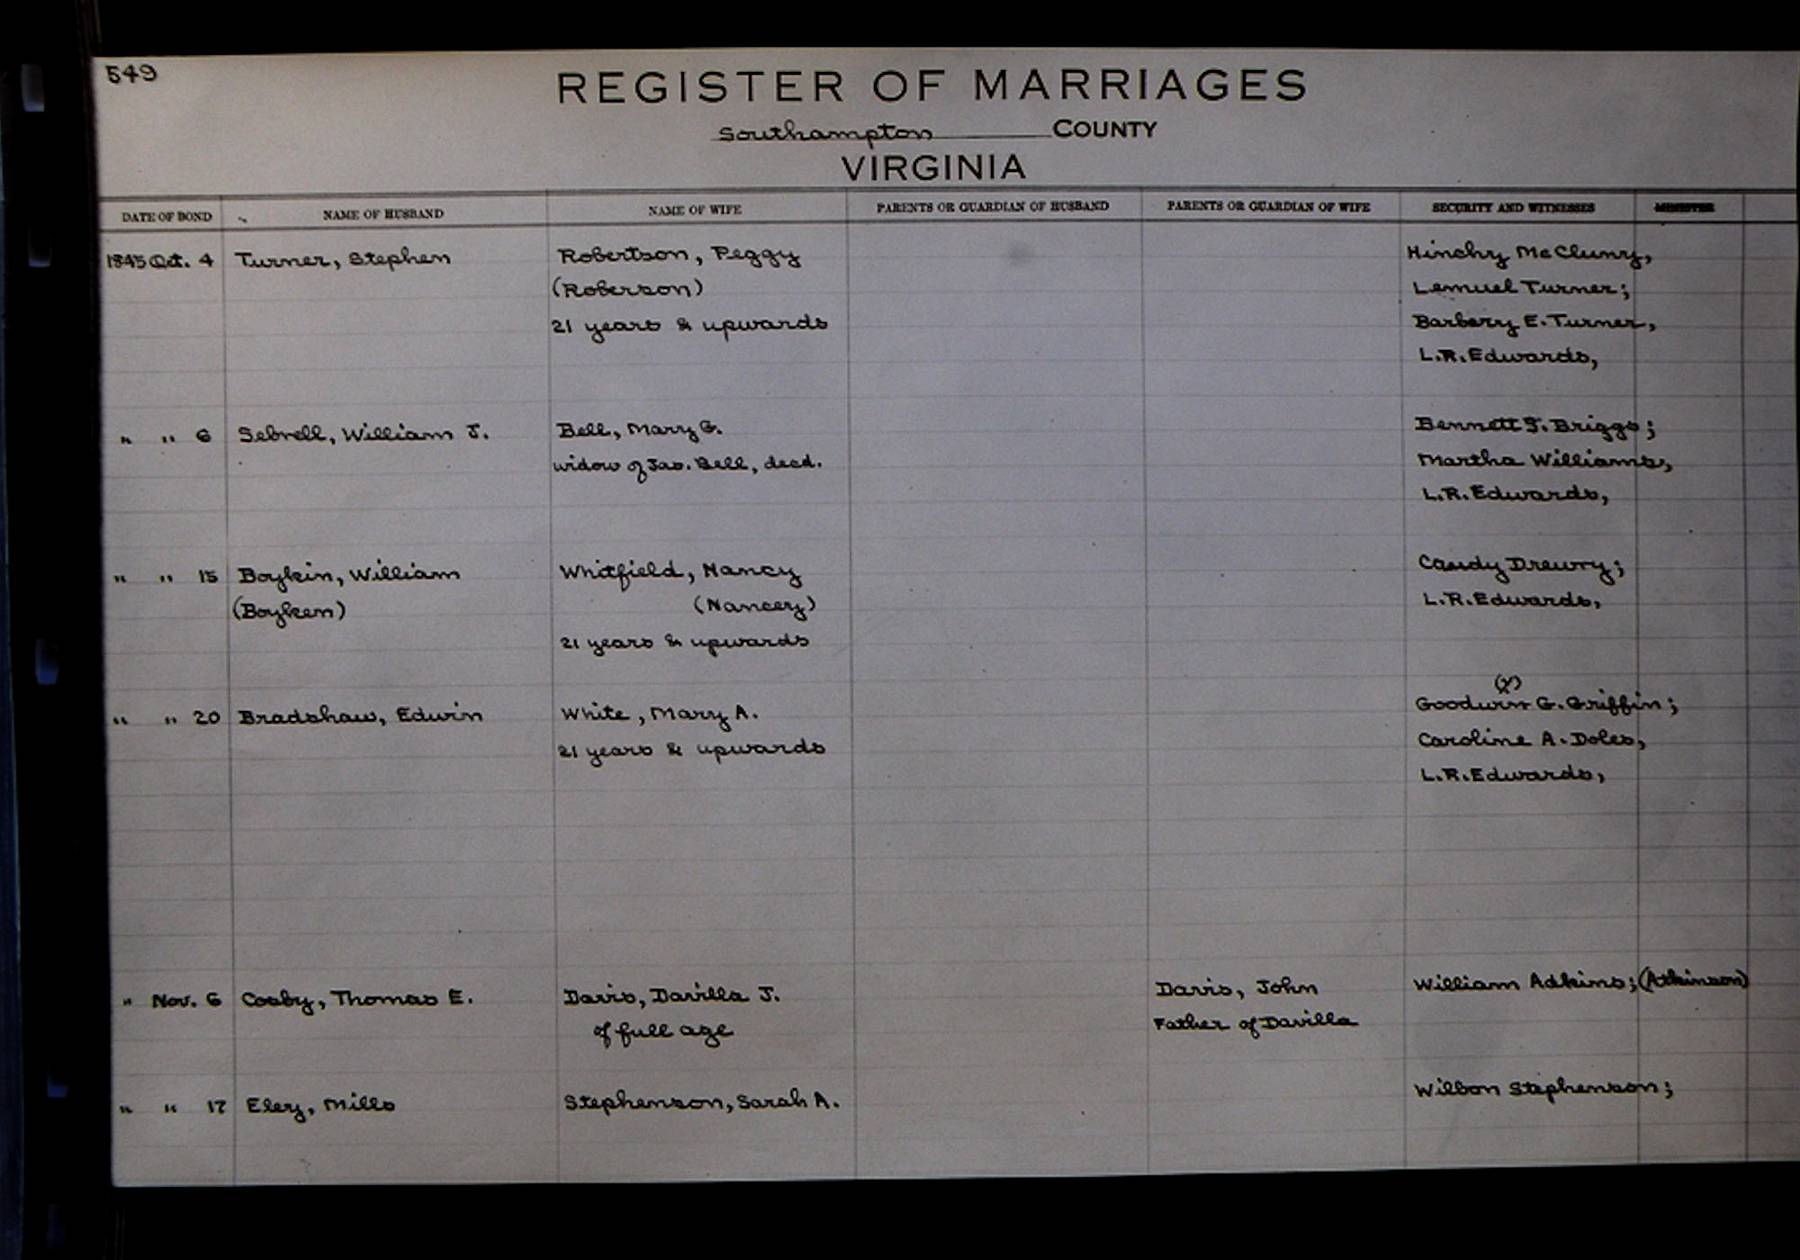 549
REGISTER OF MARRIAGES
Southampton COUNTY
VIRGINIA
DATE OF BOND NAME OF HUSBAND NAME OF WIFE PARENTS OR GUARDIAN OF HUSBAND PARENTS OR GUARDIAN OF WIFE SECURITY AND WITNESSES MINISTER
1845 Oct. 4 Turner, Stephen Robertson, Peggy Hinchy McClunry,
(Roberson) Lemuel Turner;
21 years & upwards Barbery E. Turner,
L.R. Edwards,
" " 6 Sebrell, William J. Bell, Mary G. Bennett F. Briggs;
widow of Jas. Bell, decd. Martha Williams,
L.R. Edwards,
" " 15 Boykin, William Whitfield, Nancy Candy Drewry;
(Boyken) (Nancey) L.R. Edwards,
21 years & upwards
(X)
" " 20 Bradshaw, Edwin White, Mary A. Goodwin G. Griffin;
21 years & upwards Caroline A. Doles,
L.R. Edwards,
" Nov. 6 Cosby, Thomas E. Davis, Davilla J. Davis, John William Adkins; (Atkinson)
of full age Father of Davilla
" " 17 Eley, Mills Stephenson, Sarah A. Wilson Stephenson;